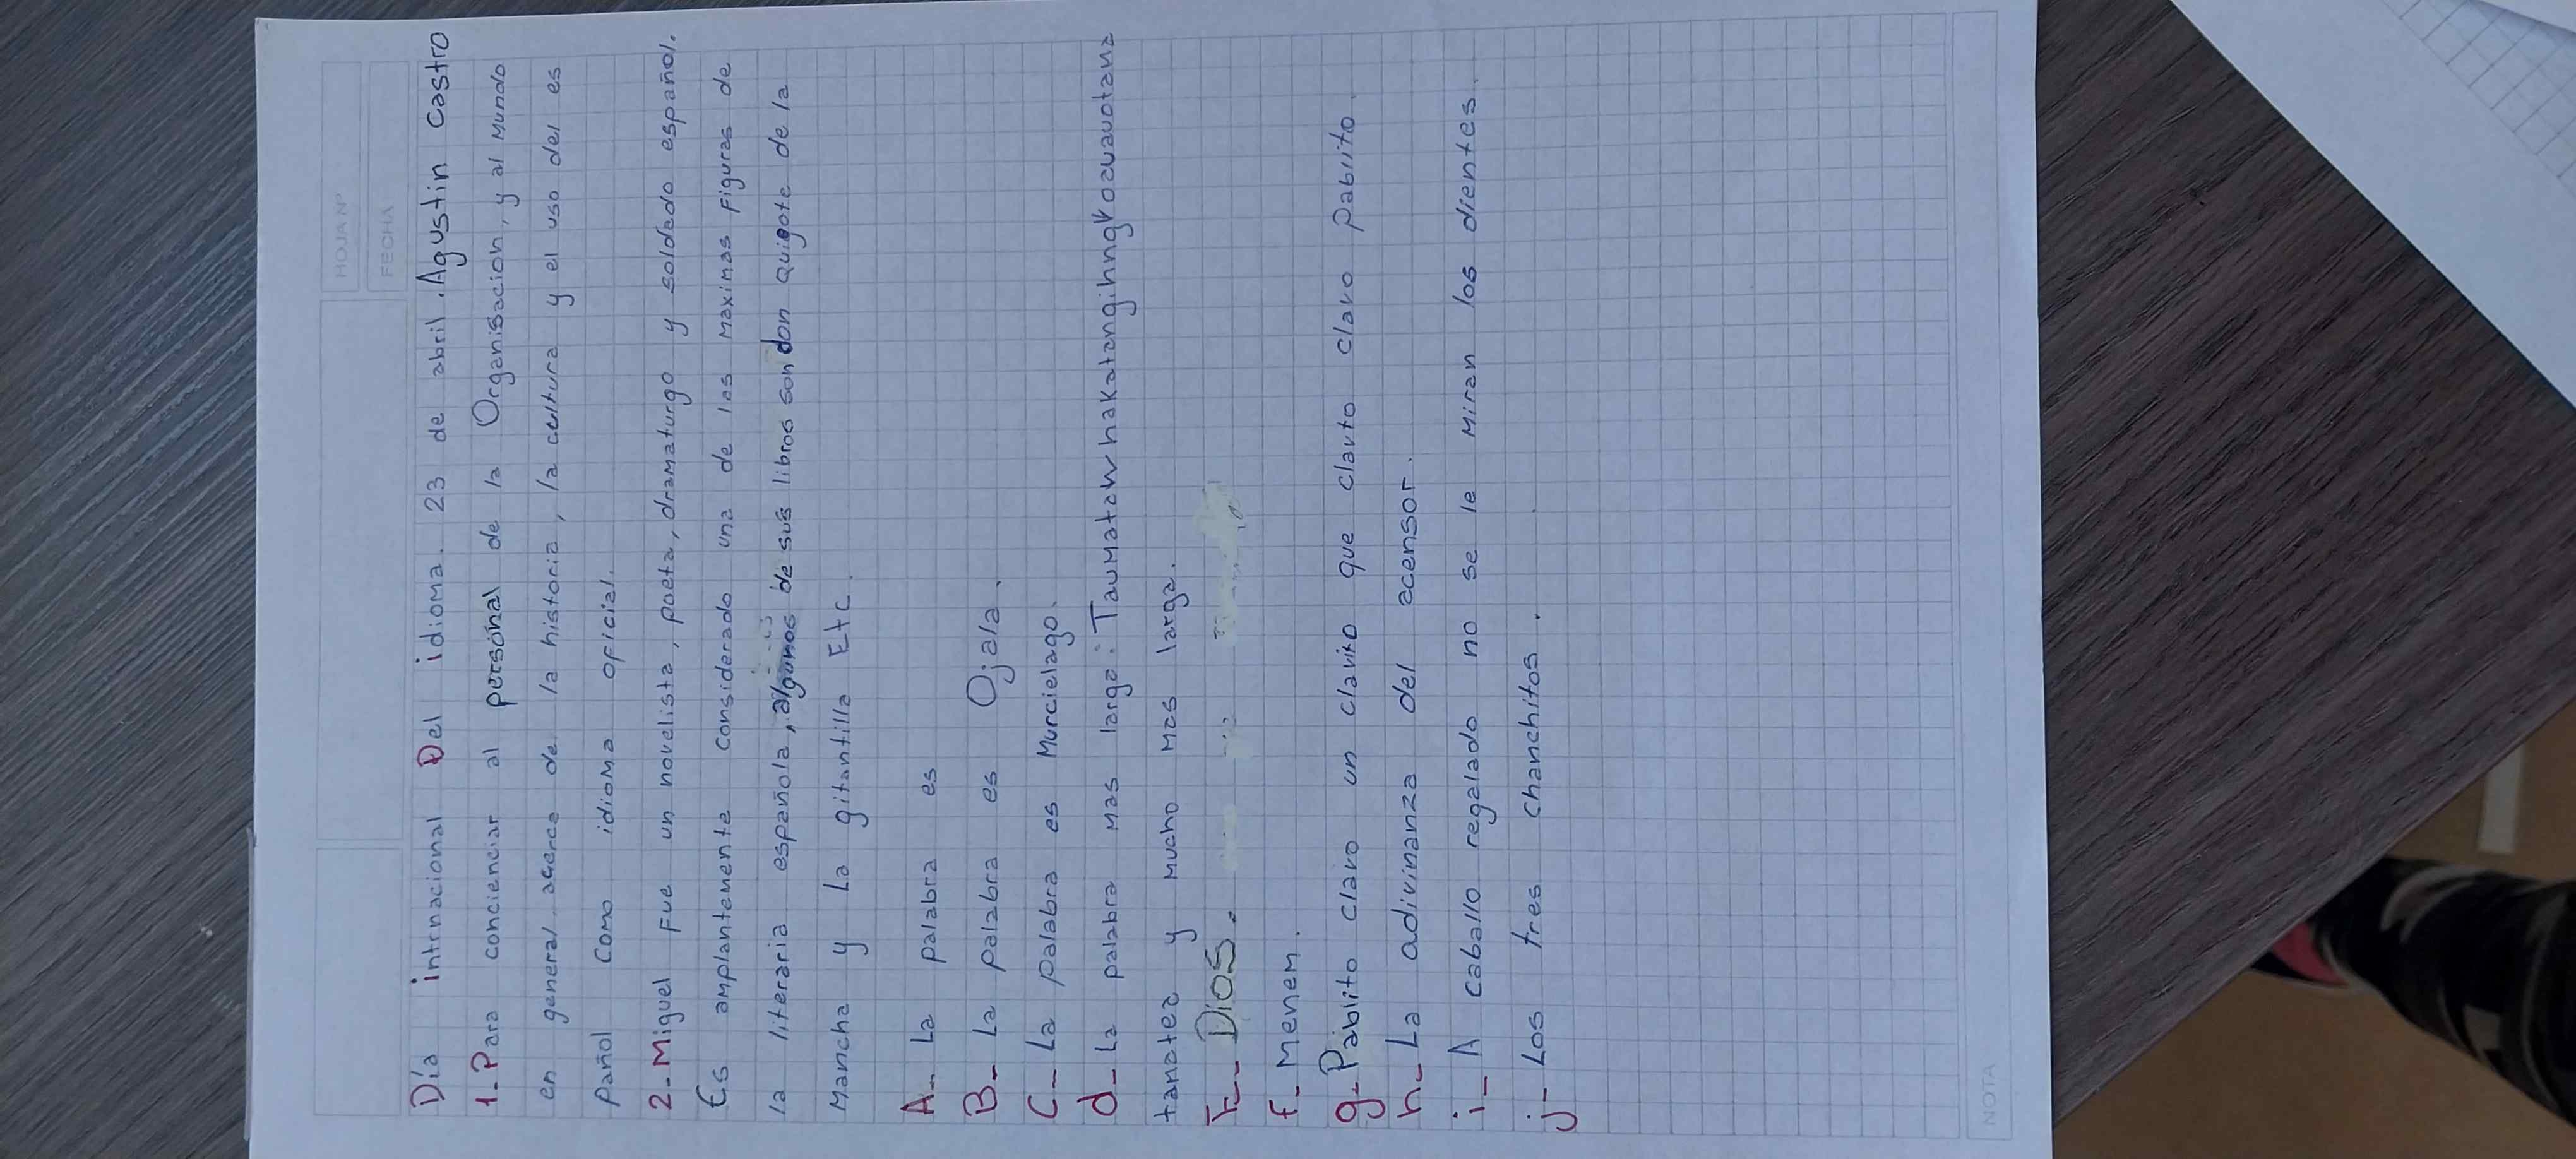 HOJA Nº
FECHA
Día intrnacional Del idioma. 23 de abril. Agustin Castro
1-Para concienciar al personal de la Organisacion, y al Mundo
en general acerca de la historia, la cultura y el uso del es
pañol Como idioma oficial.
2-Miguel Fue un novelista, poeta, dramaturgo y soldado español.
Es amplantemente Considerado una de las Maximas Figuras de
la literaria española, algunos de sus libros son don Quigote de la
Mancha y La gitantilla Etc.
A_ La palabra es
B_ La palabra es Ojala.
C_ La palabra es Murcielago.
d_ La palabra Mas largo: 
tanotez y Mucho Mas larga.
Dios.
f_ Menem.
g_ Pablito clavo un clavito que clavto clavo pablito.
h_ La adivinanza del acensor.
i_ A caballo regalado no se le Miran los dientes.
j_ Los tres Chanchitos.
NOTA